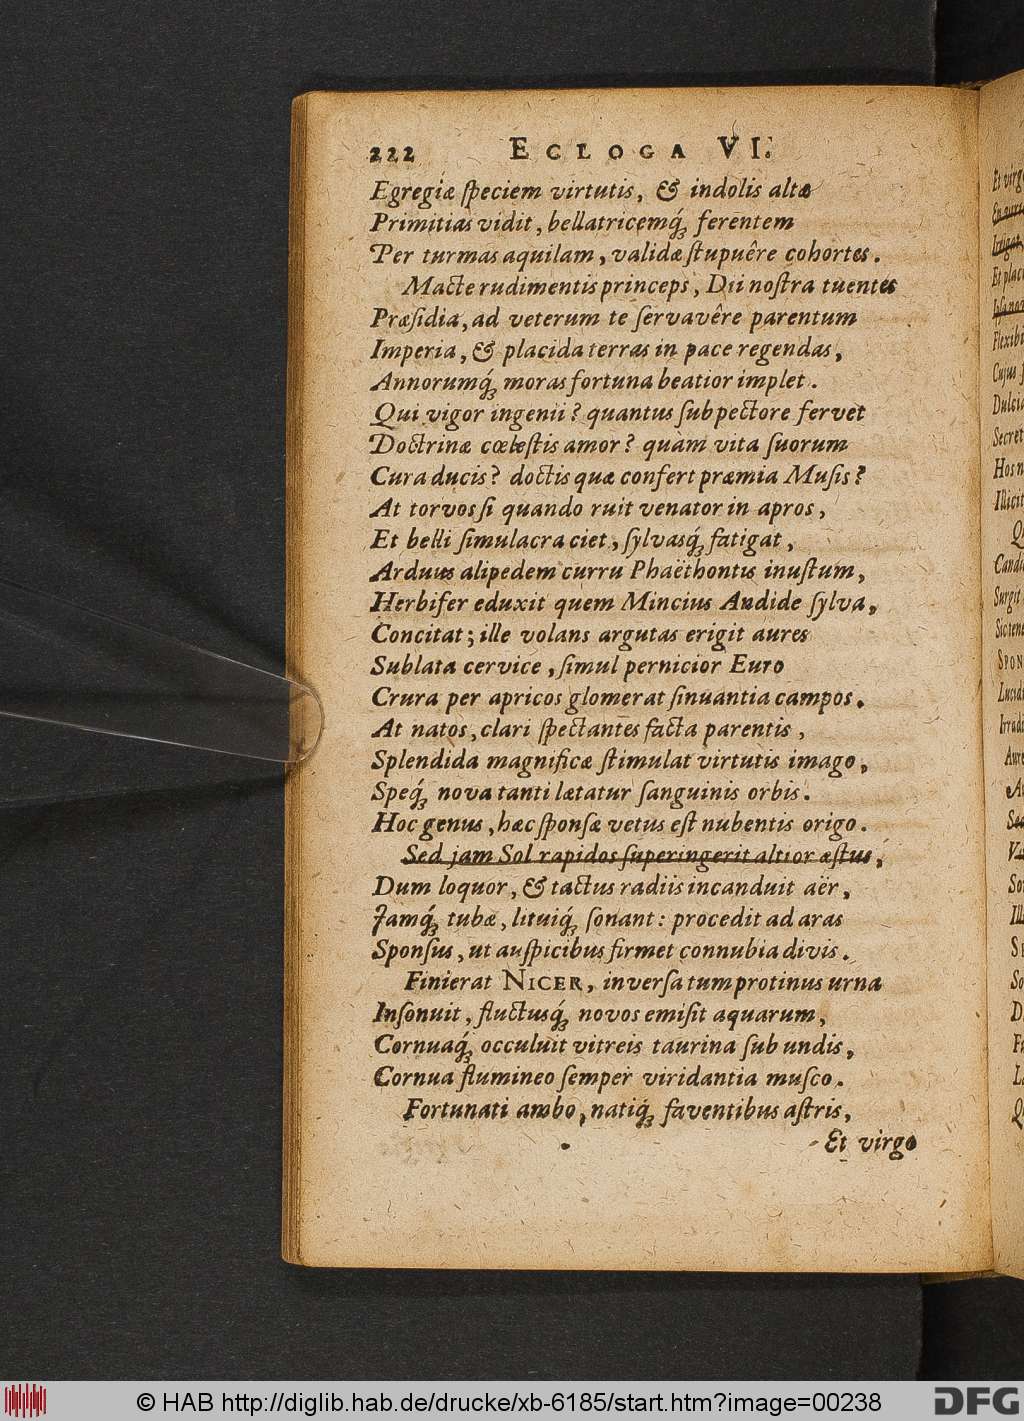 222 ECLOGA VI.
Egregiæ ſpeciem virtutis, & indolis altæ
Primitias vidit, bellatricemq́; ferentem
Per turmas aquilam, validæ ſtupuêre cohortes.
Macte rudimentis princeps, Dii noſtra tuentes
Præſidia, ad veterum te ſervavêre parentum
Imperia, & placida terras in pace regendas,
Annorumq́; moras fortuna beatior implet.
Qui vigor ingenii? quantus ſub pectore fervet
Doctrinæ cœleſtis amor? quàm vita ſuorum
Cura ducis? doctis quæ confert præmia Muſis?
At torvos ſi quando ruit venator in apros,
Et belli ſimulacra ciet, ſylvasq́; fatigat,
Arduus alipedem curru Phaëthontis inuſtum,
Herbifer eduxit quem Mincius Andide ſylva,
Concitat; ille volans argutas erigit aures
Sublata cervice, ſimul pernicior Euro
Crura per apricos glomerat ſinuantia campos.
At natos, clari ſpectantes facta parentis,
Splendida magnificæ ſtimulat virtutis imago,
Speq́; nova tanti lætatur ſanguinis orbis.
Hoc genus, hæc ſponſæ vetus eſt nubentis origo.
Sed jam Sol rapidos ſuperingerit altior æſtus,
Dum loquor, & tactus radiis incanduit aër,
Jamq́; tubæ, lituiq́; ſonant: procedit ad aras
Sponſus, ut auſpicibus firmet connubia divis.
Finierat NICER, inverſa tum protinus urna
Inſonuit, fluctusq́; novos emiſit aquarum,
Cornuaq́; occuluit vitreis taurina ſub undis,
Cornua flumineo ſemper viridantia muſco.
Fortunati ambo, natiq́; faventibus aſtris,
Et virgo
© HAB http://diglib.hab.de/drucke/xb-6185/start.htm?image=00238
DFG